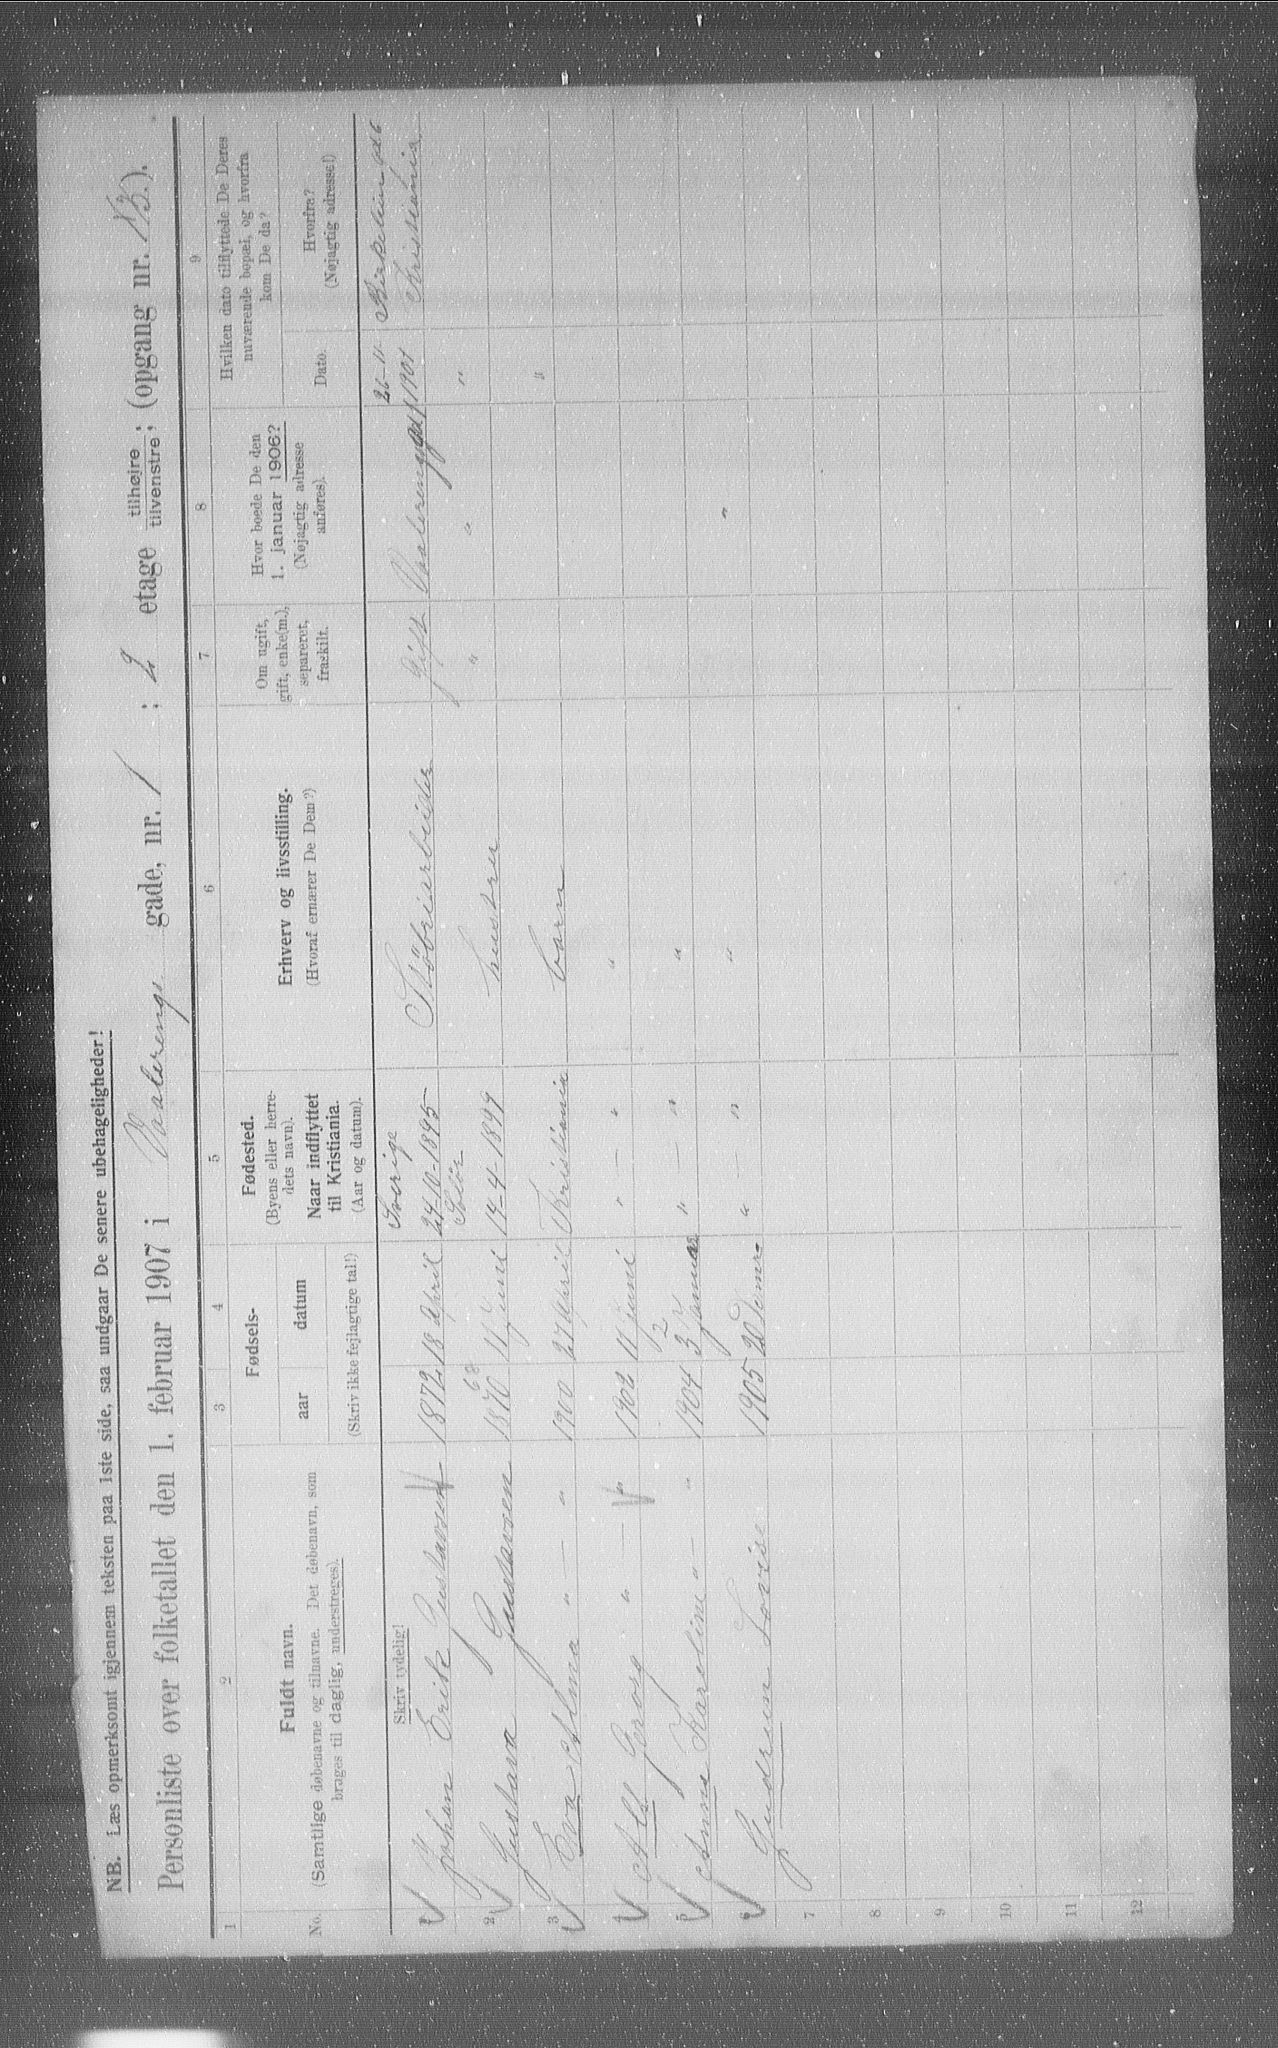 NB. Læs opmerksomt igjennem teksten paa 1ste side, saa undgaar De senere ubehageligheder!
Personliste over folketallet den 1. februar 1907 i Vaalerengs gade, nr. 1 ; 2 etage tilhøire, tilvenstre, (opgang nr. ).
1 2 3 4 5 6 7 8 9
No.
Fuldt navn.
(Samtlige døbenavne og tilnavne. Det døbenavn, som
bruges til daglig, understreges).
Skriv tydelig!
Fødsels-
aar datum
(Skriv ikke feilagtige tal!)
Fødested.
(Byens eller herre-
dets navn).
Naar indflyttet
til Kristiania.
(Aar og datum).
Erhverv og livsstilling.
(Hvoraf ernærer De Dem?)
Om ugift,
gift, enke(m.),
separeret,
fraskilt.
Hvor boede De den
1. januar 1906?
(Nøjagtig adresse
anføres).
Hvilken dato tilflyttede De Deres
nuværende bopæl, og hvorfra
kom De da?
Dato.
Hvorfra?
(Nøjagtig adresse!)
Sverige 26-11-
Johan Erik Gustavsen 1872 18 April 24-10-1895 Støberiarbeider Gift 1901 Kristiania
68 Solör
2 Gustava Gustavsen 1870 11 Juni 14-4-1899 hustru " " "
3 Eva Alma " — " 1900 27 April Kristiania barn "
4 Alf Georg " — " 1902 11 juni " — " "
2
5 Anna Karoline " — " 1904 3 Januar " — " "
6 Gudrun Lovise 1905 20 " — " " "
7
8
9
10
11
12